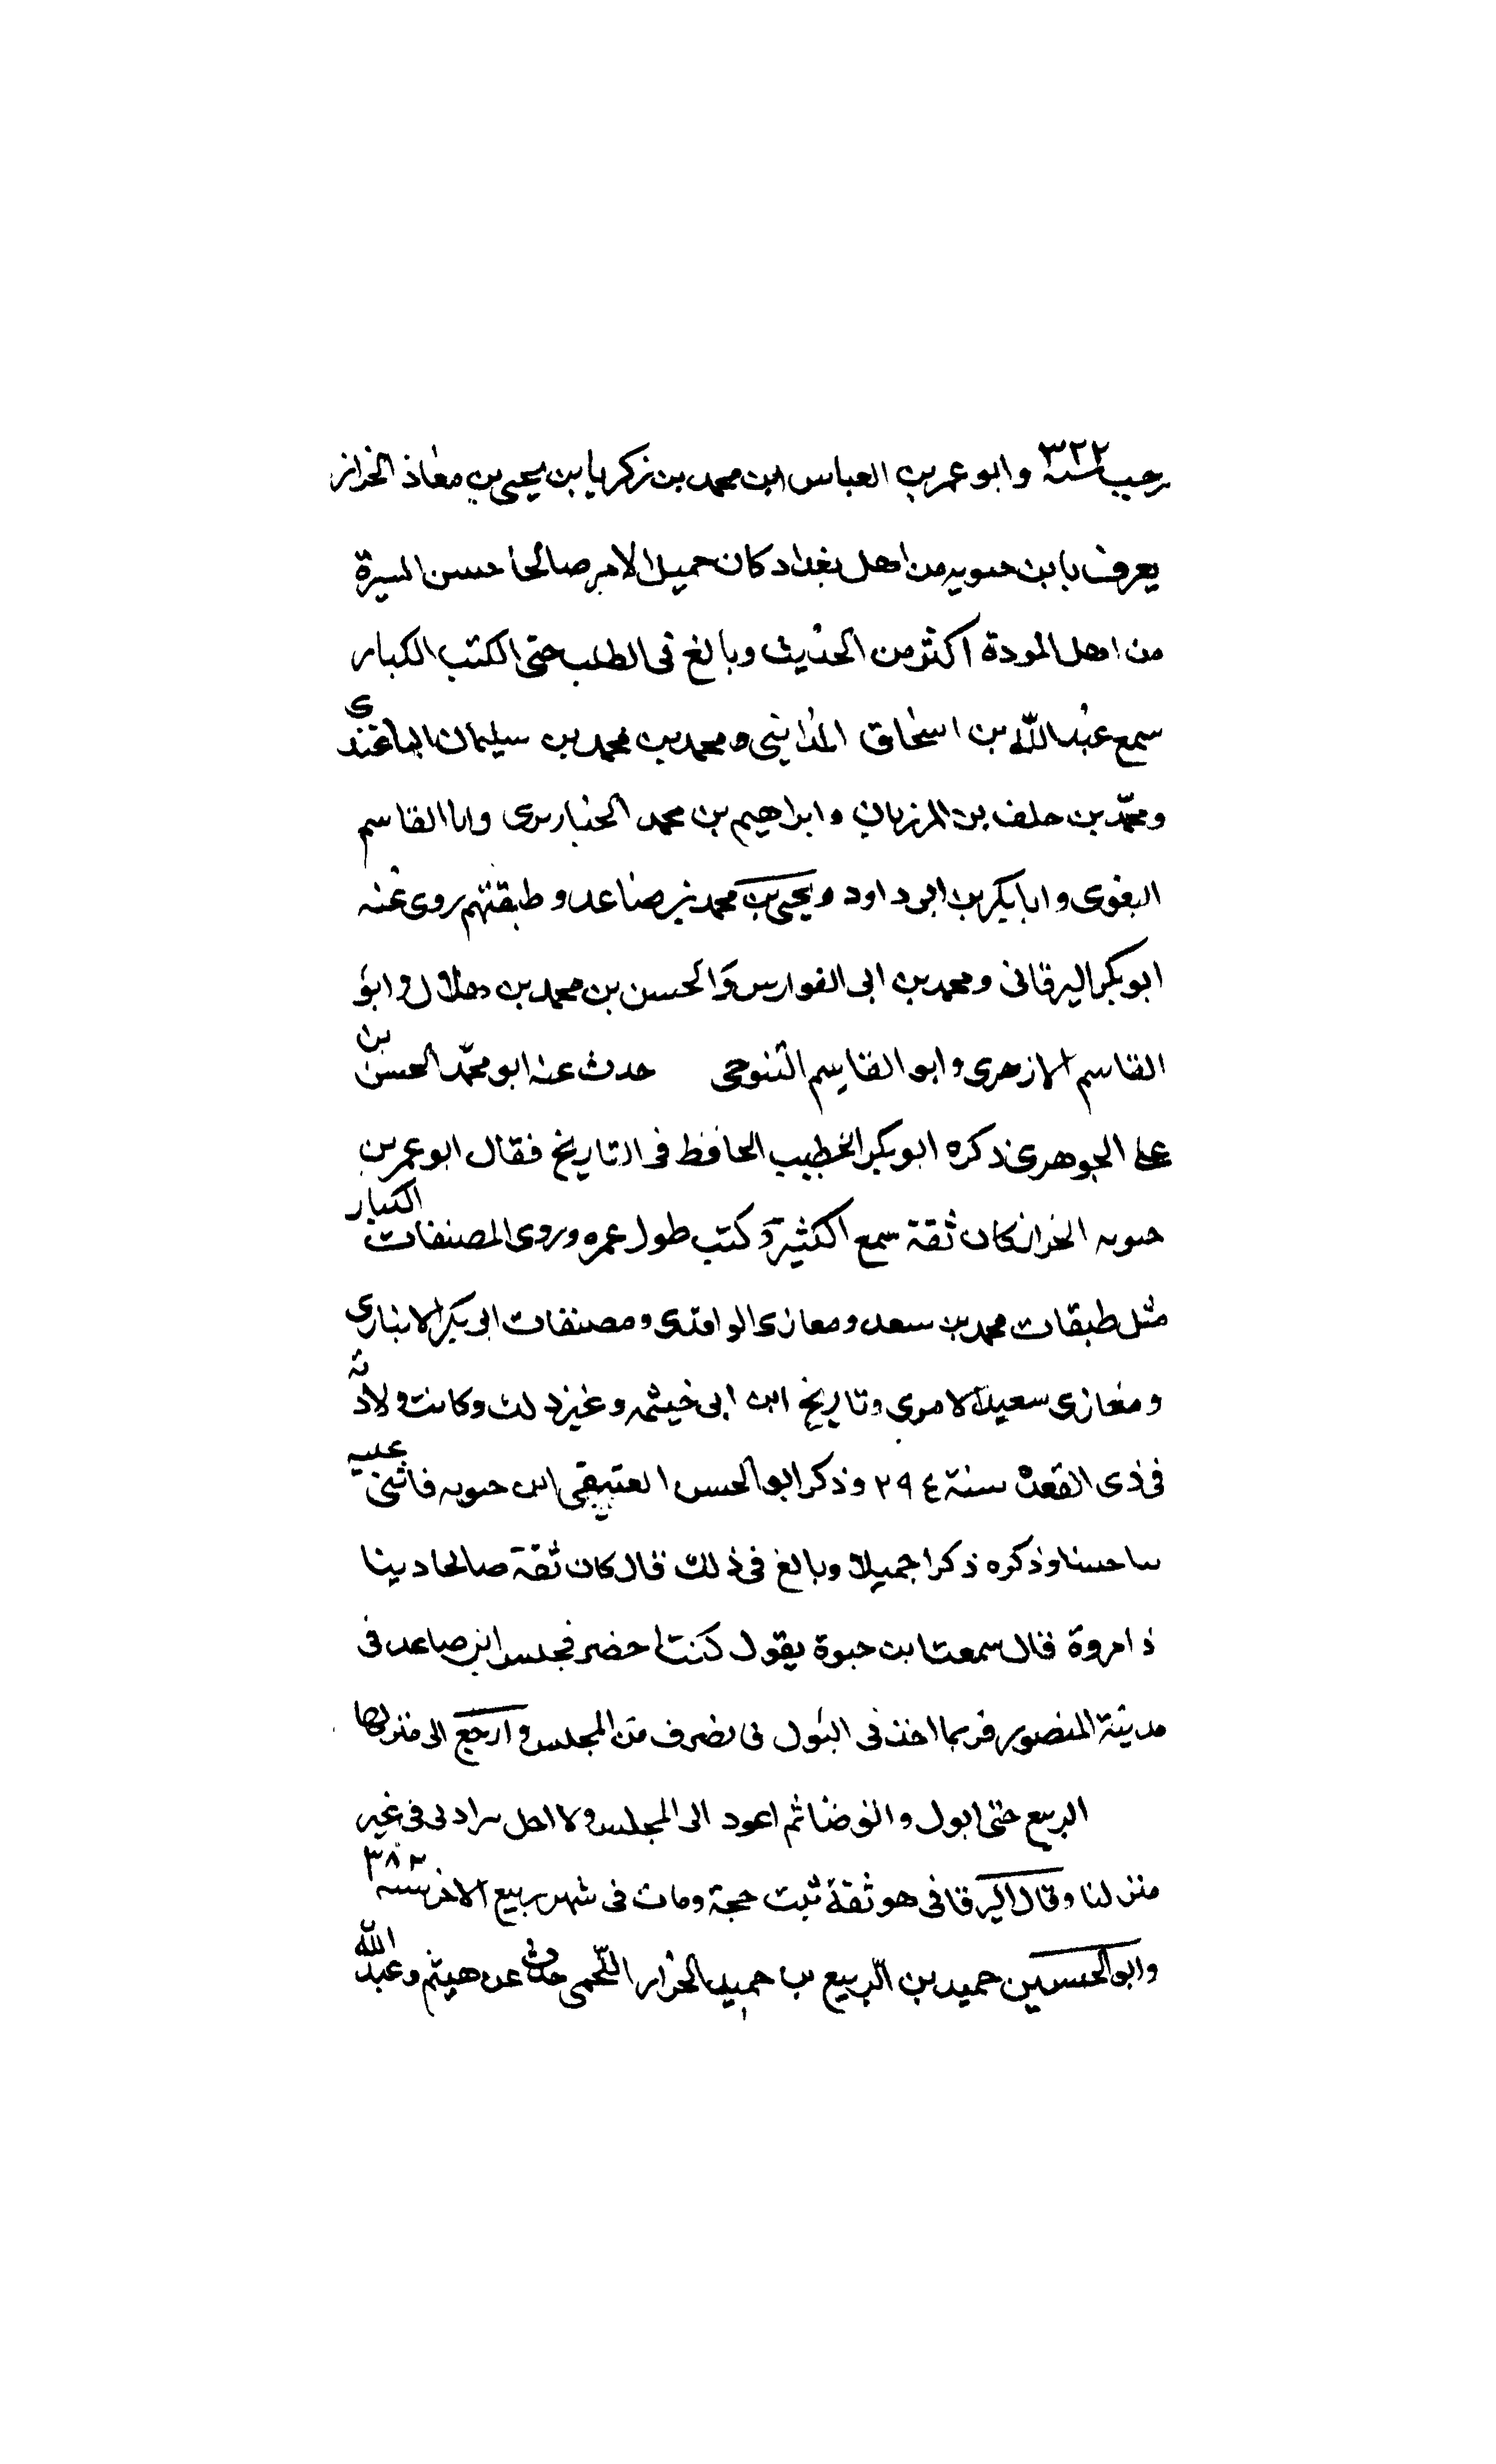 رجب سنة ٣٢٢ وابو عمر بن العباس ابن محمد بن زكريا بن يحيى بن معاذ الخزاز
يعرف بابن حسويه من اهل بغداد كان جميل الامر صالحا حسن السيرة
من اهل المودة اكثر من الحديث وبالغ فى الطلب حتى الكتب الكبار
سمع عبد الله بن اسحاق المدايني ومحمد بن محمد بن سليمان الباغندى
ومحمد بن خلف بن المرزبان وابراهيم بن محمد الخنازيرى وابا القاسم
البغوى وابا بكر بن ابى داود ويحيى بن محمد بن صاعد وطبقتهم روى عنه
ابو بكر البرقانى ومحمد بن ابى الفوارس والحسن بن محمد بن خلال وابو
القاسم الازهرى وابو القاسم التنوخى حدث عنه ابو محمد الحسن بن
على الجوهرى ذكره ابو بكر الخطيب الحافظ فى التاريخ فقال ابو عمر بن
حسويه الخزاز كان ثقة سمع الكثير وكتب طول عمره وروى المصنفات الكبار
مثل طبقات محمد بن سعد ومغازى الواقدى ومصنفات ابى بكر الانبارى
ومغازى سعيد الاموى وتاريخ ابن ابى خيثمه وغير ذلك وكانت ولادته
فى ذى القعدة سنة ٢٩٤ وذكر ابو الحسن العتيقى ابن حسويه فاثنى عليه
ثنا حسنا وذكره ذكرا جميلا وبالغ فى ذلك قال كان ثقة صالحا دينا
ذا مروة قال سمعت ابن حيوة يقول كنت احضر مجلس ابن صاعد فى
مدينة المنصور فربما اخذنى البول فى نصرف من المجلس وارجع الى منزلها
الربيع حتى ابول واتوضا ثم اعود الى المجلس ولا احل سراد لى فى غير
منزلنا وقال البرقانى هو ثقة ثبت حجة ومات فى شهر ربيع الاخر سنة ٣٨٢
وابو الحسين حميد بن الربيع بن حميد الخزاز اللخمى حدث عن هيثم وعبد الله